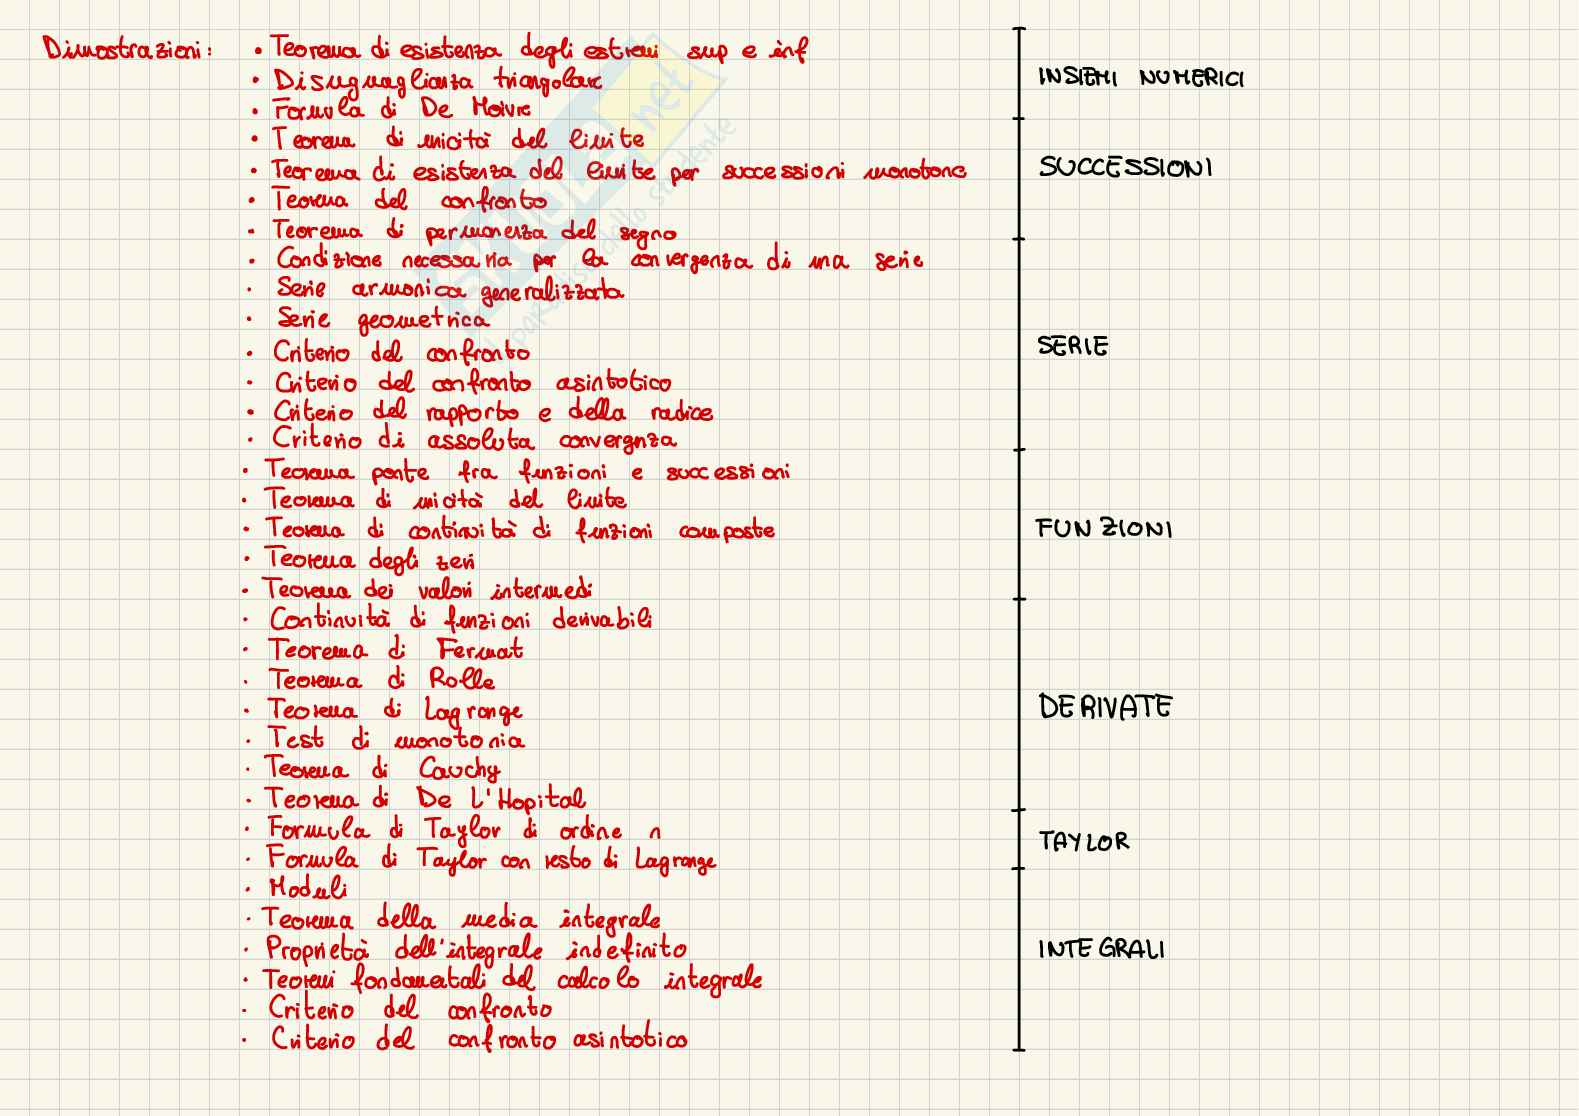 Dimostrazioni: • Teorema di esistenza degli estremi sup e inf
• Disuguaglianza triangolare
INSIEMI NUMERICI
• Formula di De Moivre
• Teorema di unicità del limite
• Teorema di esistenza del limite per successioni monotone
SUCCESSIONI
• Teorema del confronto
• Teorema di permanenza del segno
• Condizione necessaria per la convergenza di una serie
• Serie armonica generalizzata
• Serie geometrica
• Criterio del confronto
SERIE
• Criterio del confronto asintotico
• Criterio del rapporto e della radice
• Criterio di assoluta convergnza
• Teorema ponte fra funzioni e successioni
• Teorema di unicità del limite
• Teorema di continuità di funzioni composte
FUNZIONI
• Teorema degli zeri
• Teorema dei valori intermedi
• Continuità di funzioni derivabili
• Teorema di Fermat
• Teorema di Rolle
• Teorema di Lagrange
DERIVATE
• Test di monotonia
• Teorema di Cauchy
• Teorema di De L'Hopital
• Formula di Taylor di ordine n
TAYLOR
• Formula di Taylor con resto di Lagrange
• Moduli
• Teorema della media integrale
• Proprietà dell'integrale indefinito
INTEGRALI
• Teoremi fondamentali del calcolo integrale
• Criterio del confronto
• Criterio del confronto asintotico